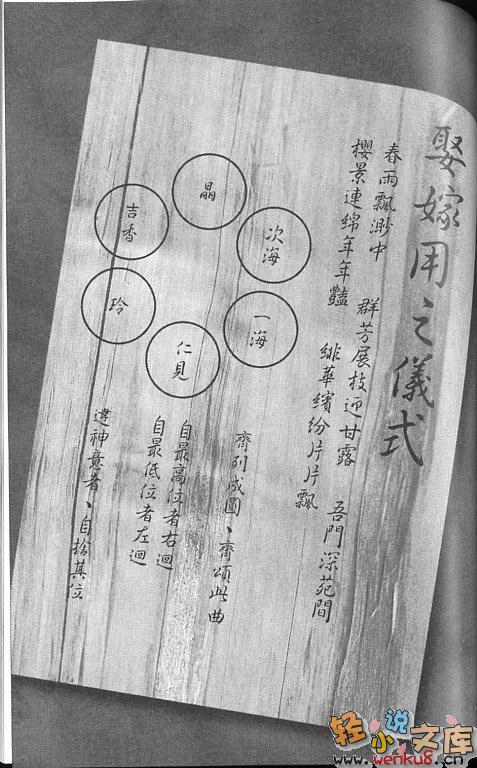 娶嫁用之儀式
春雨飄渺中
櫻景連綿年年豔
群芳展枝迎甘露
緋華繽紛片片飄
吾門深苑間
晶
次海
一海
仁見
玲
吉香
齊列成圓、齊頌此曲
自最高位者右迴
自最低位者左迴
違神意者、自捨其位
轻小说文库
www.wenku8.cn